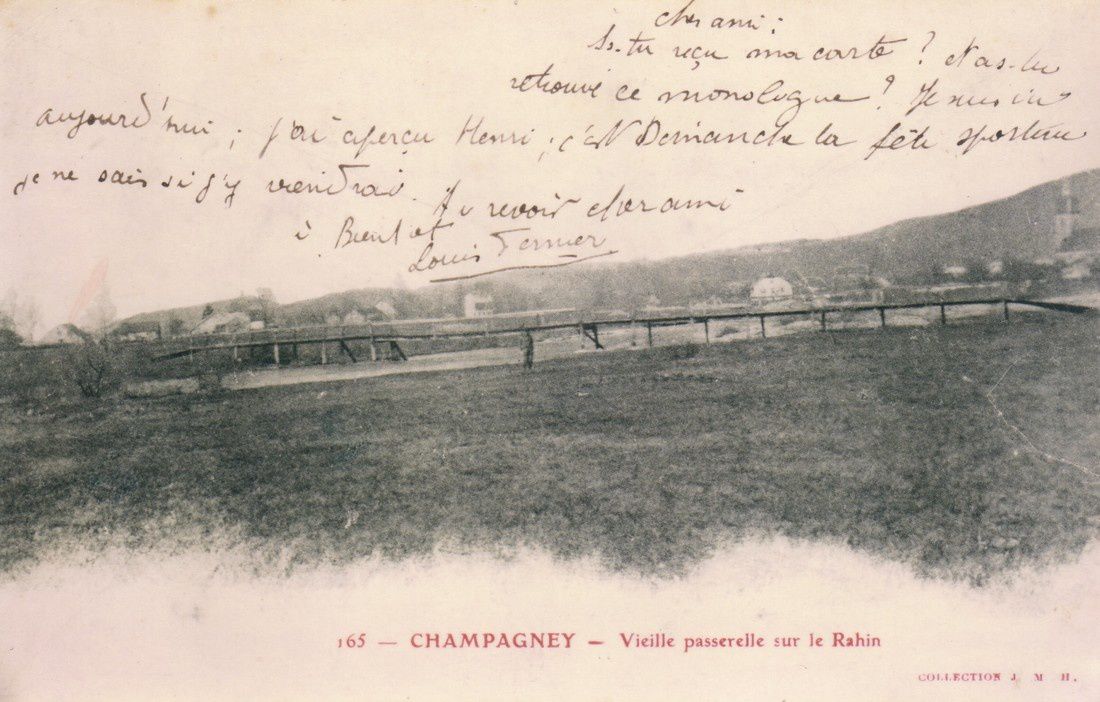 cher ami :
As-tu reçu ma carte ? N'as-tu
retrouvé ce monologue ? Je suis ici
aujourd'hui ; j'ai aperçu Henri ; c'est Dimanche la fête sportive
je ne sais si j'y viendrai.
Au revoir cher ami
à Bientot
Louis
165 — CHAMPAGNEY — Vieille passerelle sur le Rahin
COLLECTION J. M. H.